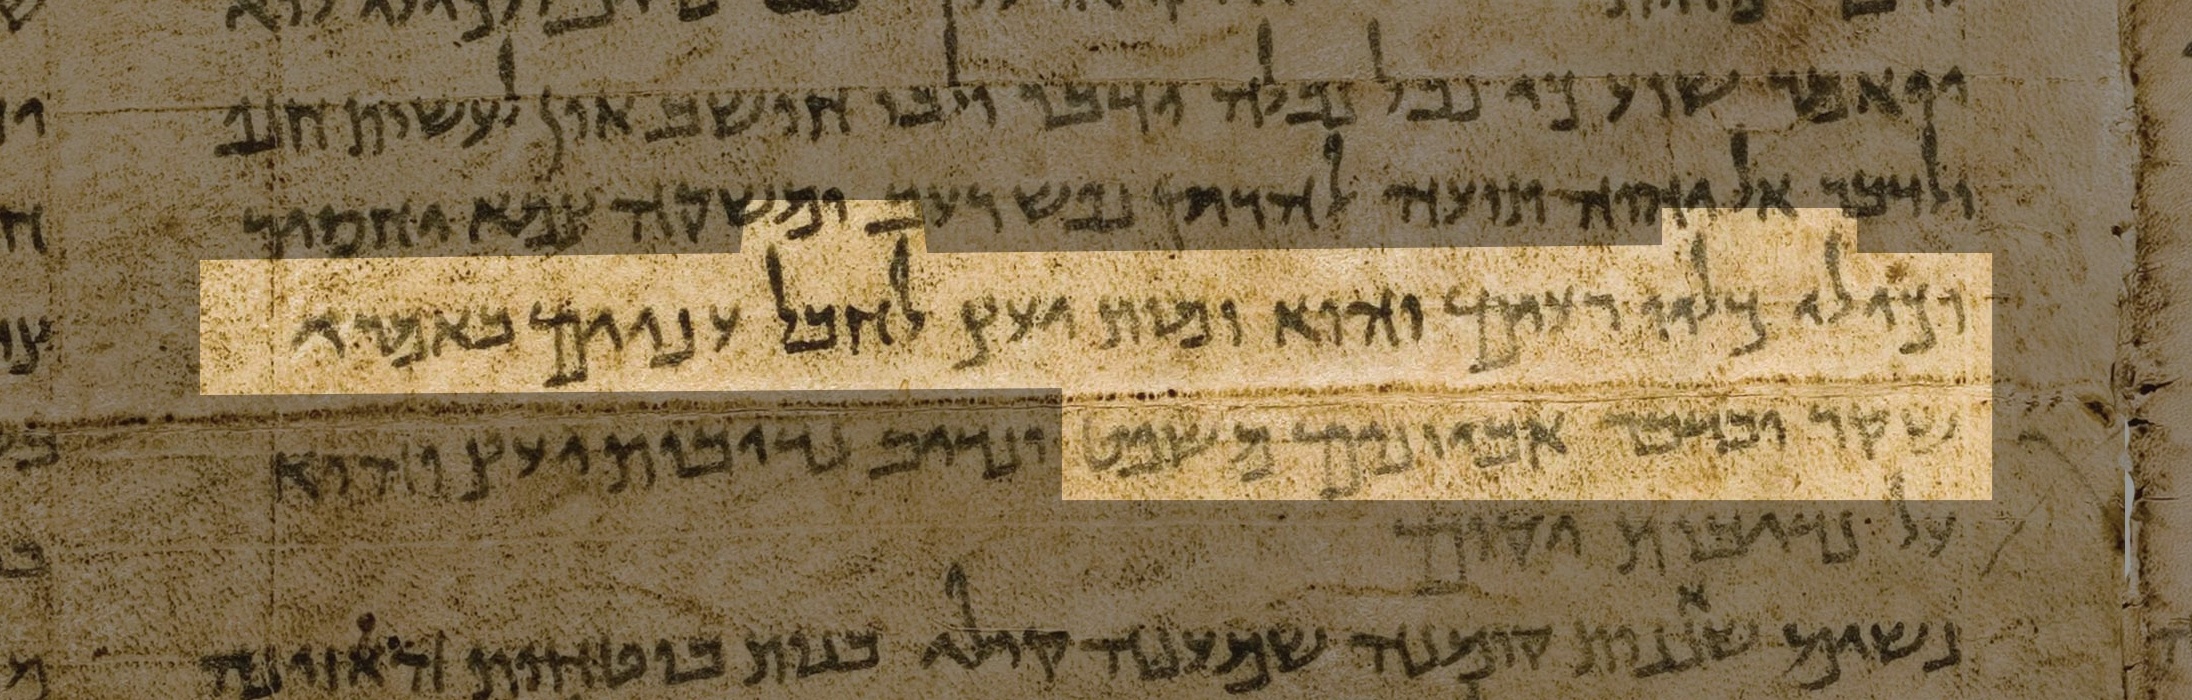 יואמר שוע כי נבל נבלה ידבר ולבו חושב און לעשות חנף
ולדבר אל יהוה תועה להריק נפש רעב ומשקה צמא יחסור
וכילי כליו רעים והוא זמות יעץ לחבל ענוים באמרי
שקר ובדבר אביונים משפט ונדיב נדיבות יעץ והוא
על נדיבות יקום
נשים שאננות קומנה שמענה קולי בנות בוטחות האזנה